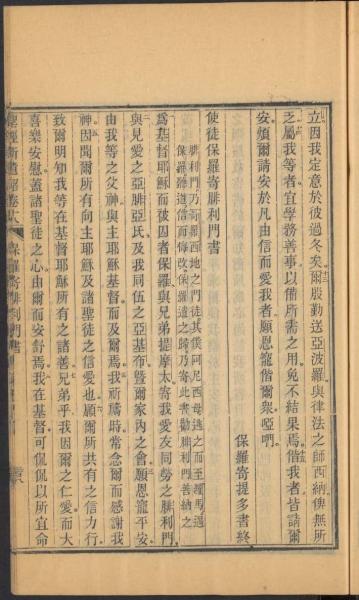 立因我定意於彼過冬矣爾殷勤送亞波羅與律法之師西納俾無所
之屬我等者宜學務善事以備所需之用免不結果焉偕我者皆請爾
安煩爾請安於凡由信而愛我者願恩寵偕爾衆啞們
保羅寄提多書終
使徒保羅寄腓利門書
腓利門乃哥羅西地之門徒其僕阿尼西母逃之而至羅馬遇
保羅聽道信而悔改保羅遣之歸乃寄此書勸腓利門善納之
爲基督耶穌而被囚者保羅與兄弟提摩太寄我愛友同勞之腓利門
與見愛之亞腓亞氏及我同伍之亞基布曁爾家內之會願恩寵平安
由我等之父神與主耶穌基督而及爾焉我祈禱時常念爾而感謝我
神因聞爾所有向主耶穌及諸聖徒之信愛也願爾所共有之信力行
致爾明知我等在基督耶穌所有之諸善兄弟乎我因爾之仁愛而大
喜樂安慰蓋諸聖徒之心由爾而安舒焉我在基督可侃侃以所宜命
聖經新遺詔卷六 保羅寄腓利門書